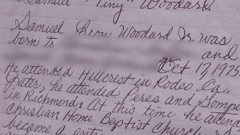 Samuel "Tiny" Woodard
Samuel Leon Woodard Jr. was
born to and
Oct 17, 1975
He attended Hillcrest in Rodeo, Ca.
later, he attended Peres and Dompe
in Richmond. At this time he atten
Christian Home Baptist Church
became a